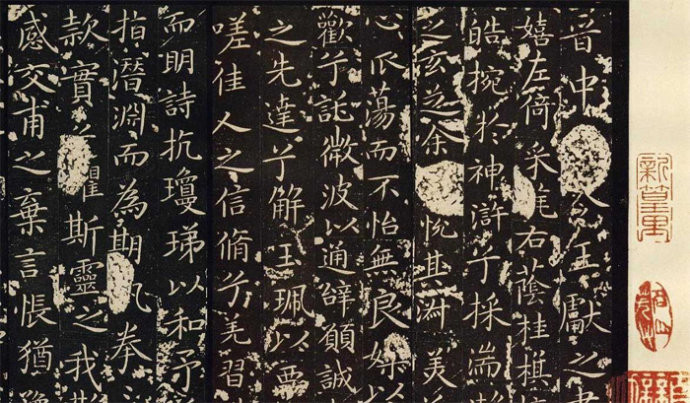 晉中令王獻之書
嬉左倚采旄右蔭桂旗
皓捥於神滸兮採湍
之玄芝余悅其淑美
心蕩而不怡無良媒
歡兮託微波以通辭願誠
之先達兮解玉珮以要
嗟佳人之信脩兮羌習
而明詩抗瓊珶以和予
指潛淵而為期執拳
款實之懼斯靈之我
感交甫之棄言悵猶豫